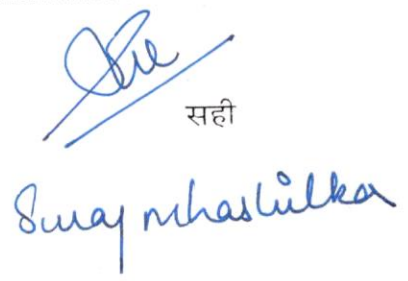 सही
Suraj Mhashilkar